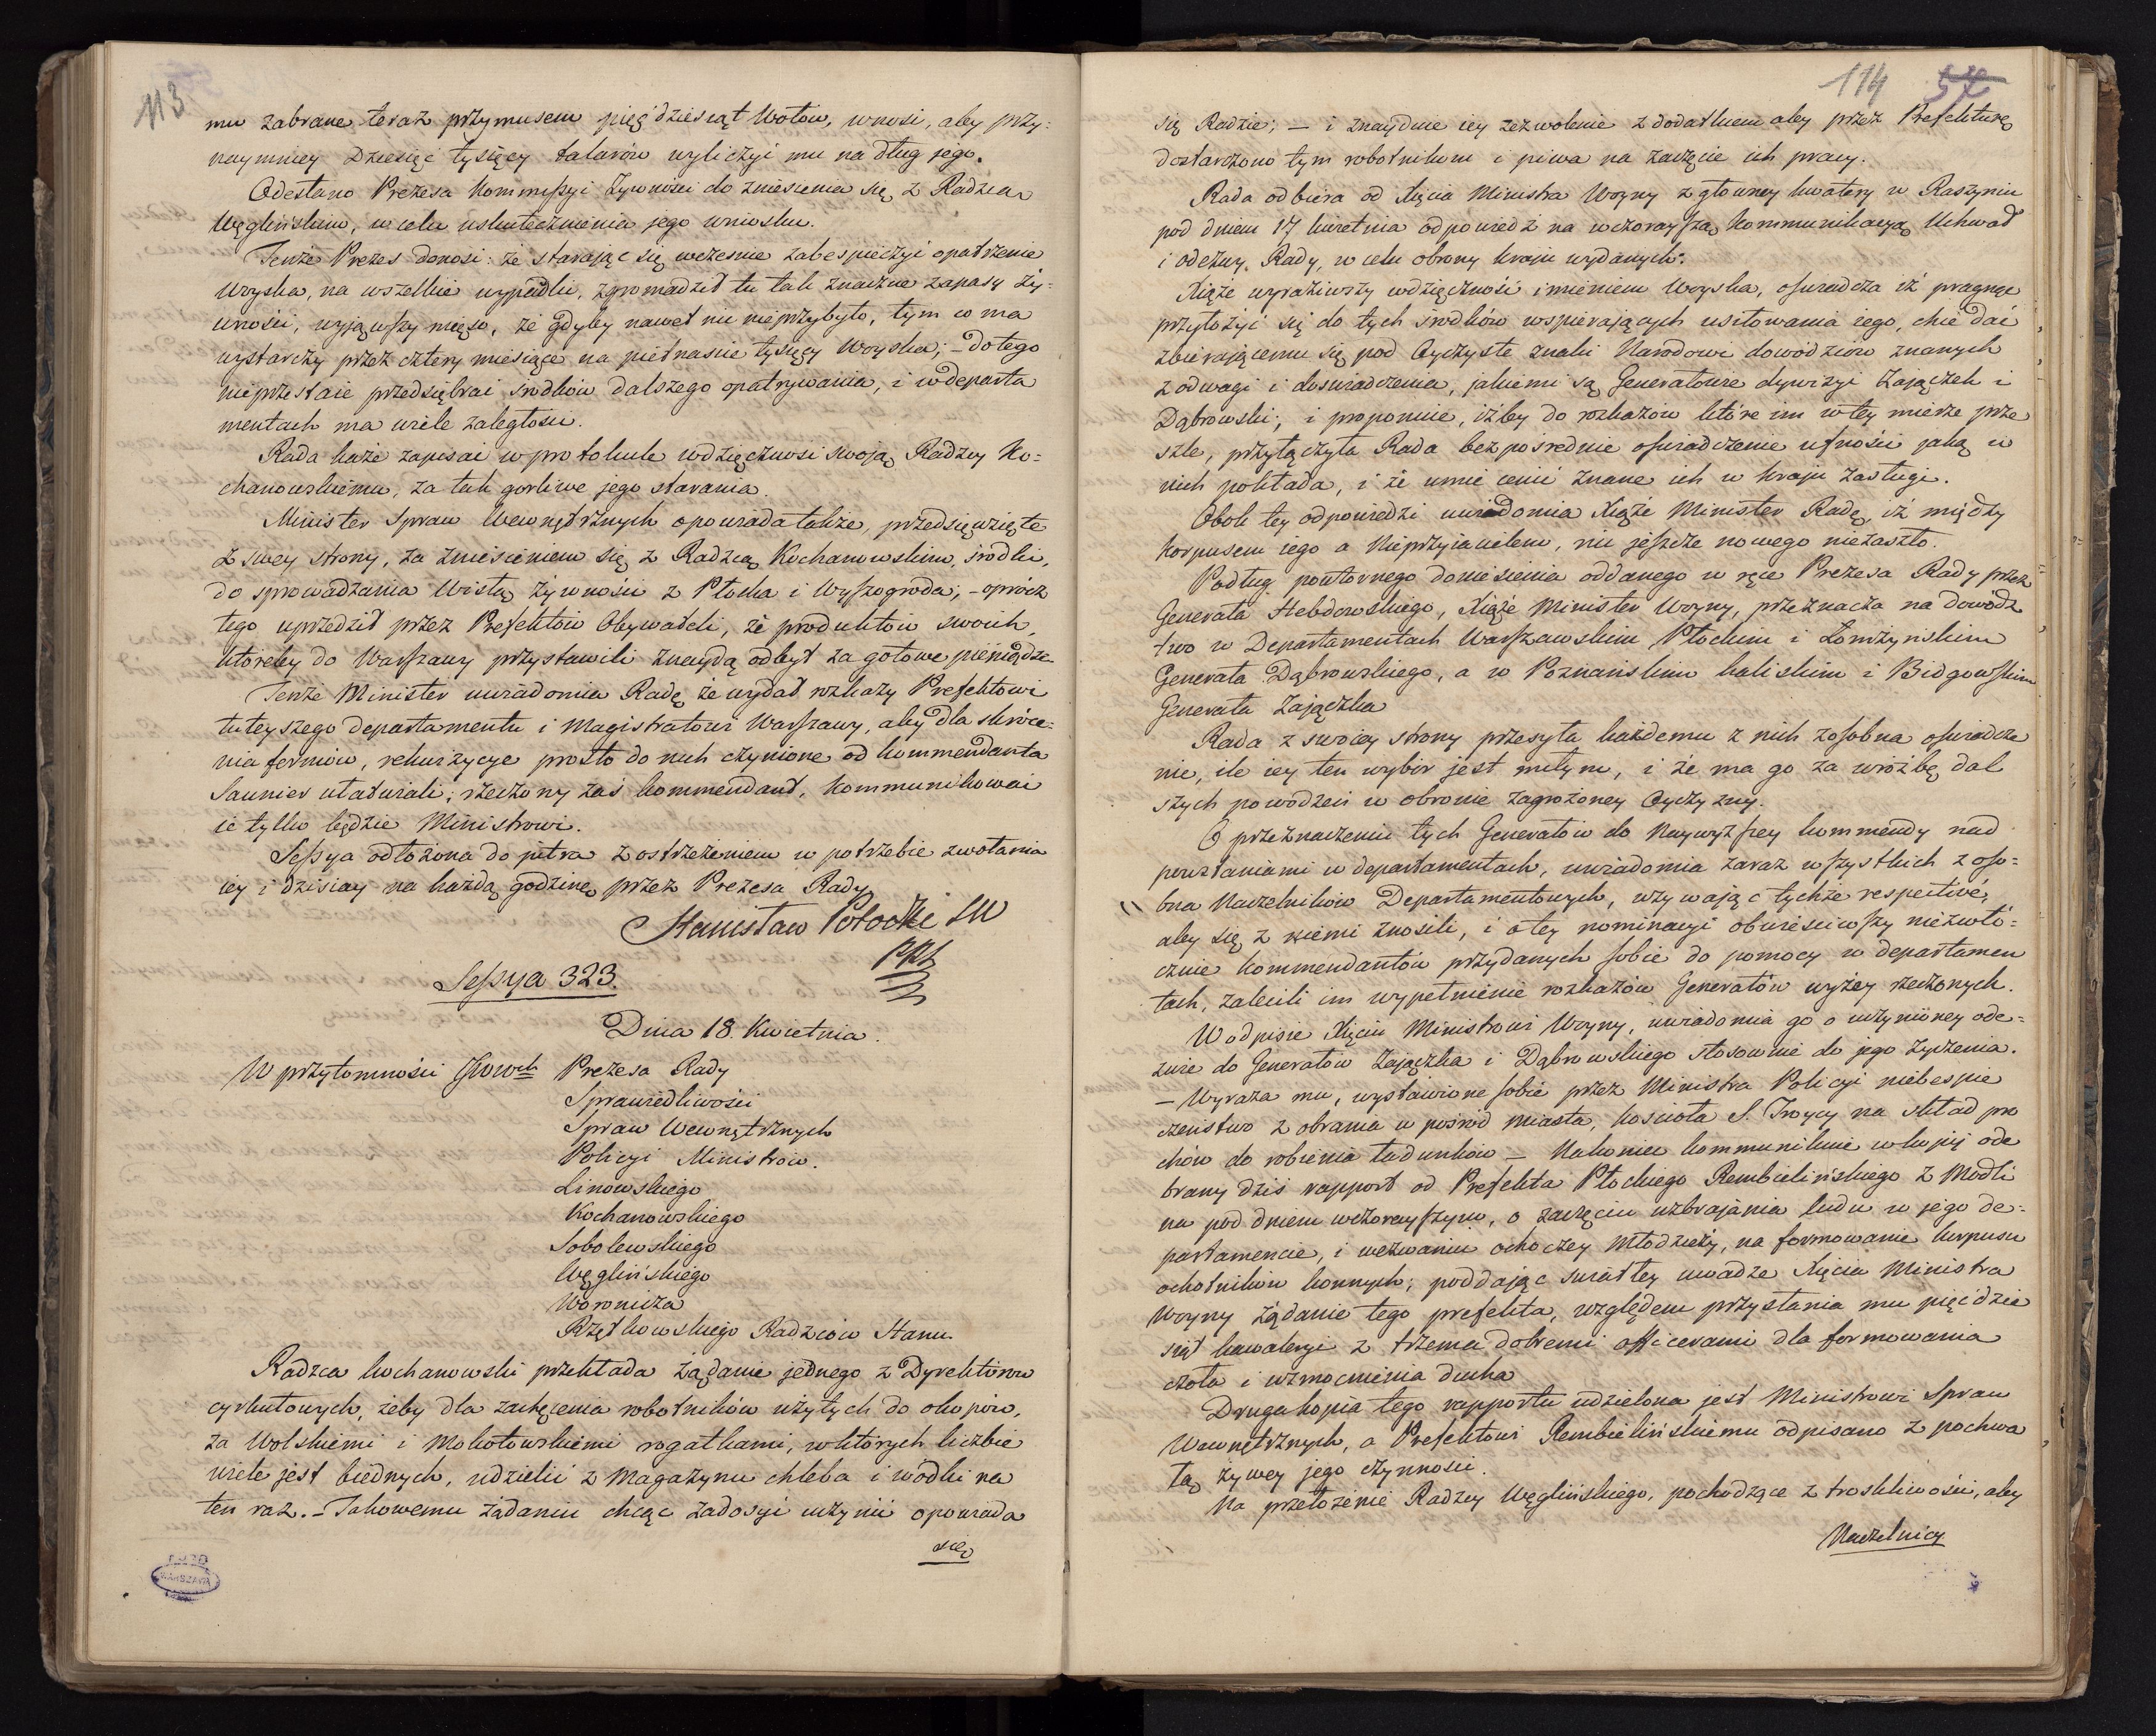 113
mu zabrane teraz przymusem pięćdziesiąt Wołów, wnosi, aby przy=
naymniey Dziesięć tysięcy talarów wyliczyć mu na dług jego.
Odesłano Prezesa Kommissyi Żywności do zniesienia się z Radzcą
Węglińskim, w celu uskutecznienia jego wniosku.
Tenże Prezes donosi: że starając się wcześnie zabespieczyć opatrzenie
Woyska, na wszelkie wypadki, zgromadził tu tak znaczne zapasy ży=
wności, wyjąwszy mięso, że gdyby nawet nic nieprzybyło, tym co ma
wystarczy przez cztery miesiące na pietnaście tysięcy Woyska; – do tego
nieprzestaie przedsiębrać środków dalszego opatrywania, i w departa
mentach ma wiele zaległości.
Rada każe zapisać w protokule wdzięczność swoją Radzcy Ko=
chanowskiemu, za tak gorliwe jego starania.
Minister Spraw Wewnętrznych opowiada także, przedsięwzięte
z swey strony, za zniesieniem się z Radzcą Kochanowskim, środki,
do sprowadzania Wisłą żywności z Płocka i Wyszogroda; – oprócz
tego uprzedził przez Prefektów Obywateli, że produktów swoich,
któreby do Warszawy przystawili znaydą odbyt za gotowe pieniądze.
Tenże Minister uwiadomia Radę, że wydał rozkazy Prefektowi
tuteyszego departamentu i Magistratowi Warszawy, aby dla skróce=
nia formów, rekwizycye prosto do nich czynione od Kommendanta
Saunier ułatwiali; rzeczony zaś kommendant, kommunikować
ie tylko będzie Ministrowi.
Sessya odłożona do jutra z ostrzeżeniem w potrzebie zwołania
iey i dzisiay na każdą godzinę przez Prezesa Rady.
Stanisław Potocki SW
PRS
Sessya 323.
Dnia 18. Kwietnia.
W przytomności JWWch Prezesa Rady
Sprawiedliwości
Spraw Wewnętrznych
Policyi Ministrów.
Linowskiego
Kochanowskiego
Sobolewskiego
Węglińskiego
Woronicza
Rzętkowskiego Radzców Stanu
Radzca Kochanowski przekłada żądanie jednego z Dyrektorów
cyrkułowych, żeby dla zachęcenia robotników użytych do okopów,
za Wolskiemi i Mokotowskiemi rogatkami, w których liczbie
wiele jest biednych, udzielić z Magazynu chleba i wódki na
ten raz. – Takowemu żądaniu chcąc zadosyć uczynić opowiada
się
114 57
się Radzie; – i znayduie iey zezwolenie z dodatkiem aby przez Prefekturę
dostarczono tym robotnikom i piwa na zaczęcie ich pracy.
Rada odbiera od Xięcia Ministra Woyny z głowney kwatery w Raszynie
pod dniem 17 kwietnia odpowiedź na wczorayszą Kommunikacyą Uchwał
i odezwy Rady, w celu obrony kraju wydanych.
Xiąże wyraziwszy wdzięczność imieniem Woyska, oświadcza iż pragnąc
przyłożyć się do tych środków wspierających usiłowania iego, chce dać
zbierającemu się pod Oyczyste znaki Narodowi dowódzców znanych
z odwagi i doświadczenia, jakiemi są Generałowie dywizyi Zajączek i
Dąbrowski; i proponuie, iżby do rozkazów które im w tey mierze prze
szle, przyłączyła Rada bezpośrednie oświadczenie ufności jaką w
nich pokłada, i że umie cenić znane ich w kraju zasługi.
Obok tey odpowiedzi uwiadomia Xiąże Minister Radę, iż między
korpusem iego a Nieprzyiacielem, nic jeszcze nowego niezaszło.
Podług powtornego doniesienia oddanego w ręce Prezesa Rady przez
Generała Hebdowskiego, Xiąże Minister Woyny, przeznacza na dowódz
two w Departamentach Warszawskim Płockim i Łomżyńskim
Generała Dąbrowskiego, a w Poznańskim kaliskim i Bidgowskim
Generała Zajączka
Rada z swoiey strony przesyła każdemu z nich zosobna oświadcze
nie, ile iey ten wybór jest miłym, i że ma go za wróżbę dal
szych powodzeń w obronie zagrożoney Oyczyzny.
O przeznaczeniu tych Generałów do Naywyższey kommendy nad
powstaniami w departamentach, uwiadomia zaraz wszystkich z oso=
bna Naczelników Departamentowych, wzywając tychże respective,
aby się z niemi znosili, i o tey nominacyi obwieściwszy niezwło=
cznie kommendantów przydanych sobie do pomocy w departamen
tach, zalecili im wypełnienie rozkazów Generałów wyżey rzeczonych.
W odpisie Xięciu Ministrowi Woyny, uwiadomia go o uczynioney ode=
zwie do Generałów Zajączka i Dąbrowskiego stosownie do jego życzenia.
– Wyraża mu, wystawione sobie przez Ministra Policyi niebespie
czeństwo z obrania w pośród miasta, kościoła S. Troycy na skład pro
chów do robienia ładunków – Nakoniec kommunikuie w kopii ode
brany dziś rapport od Prefekta Płockiego Rembielińskiego z Modli
na pod dniem wczorayszym, o zaczęciu uzbrajania ludu w jego de=
partamencie, i wezwaniu ochoczey Młodzieży, na formowanie korpusu
ochotników konnych; poddając światłey uwadze Xięcia Ministra
Woyny żądanie tego prefekta, względem przysłania mu pięćdzie
siąt kawaleryi z trzema dobremi officerami dla formowania
czoła i wzmocnienia ducha
Druga kopia tego rapportu udzielona jest Ministrowi Spraw
Wewnętrznych, a Prefektowi Rembielińskiemu odpisano z pochwa
łą żywey jego czynności.
Na przełożenie Radzcy Węglińskiego, pochodzące z troskliwości, aby
Naczelnicy
WARSZAWA